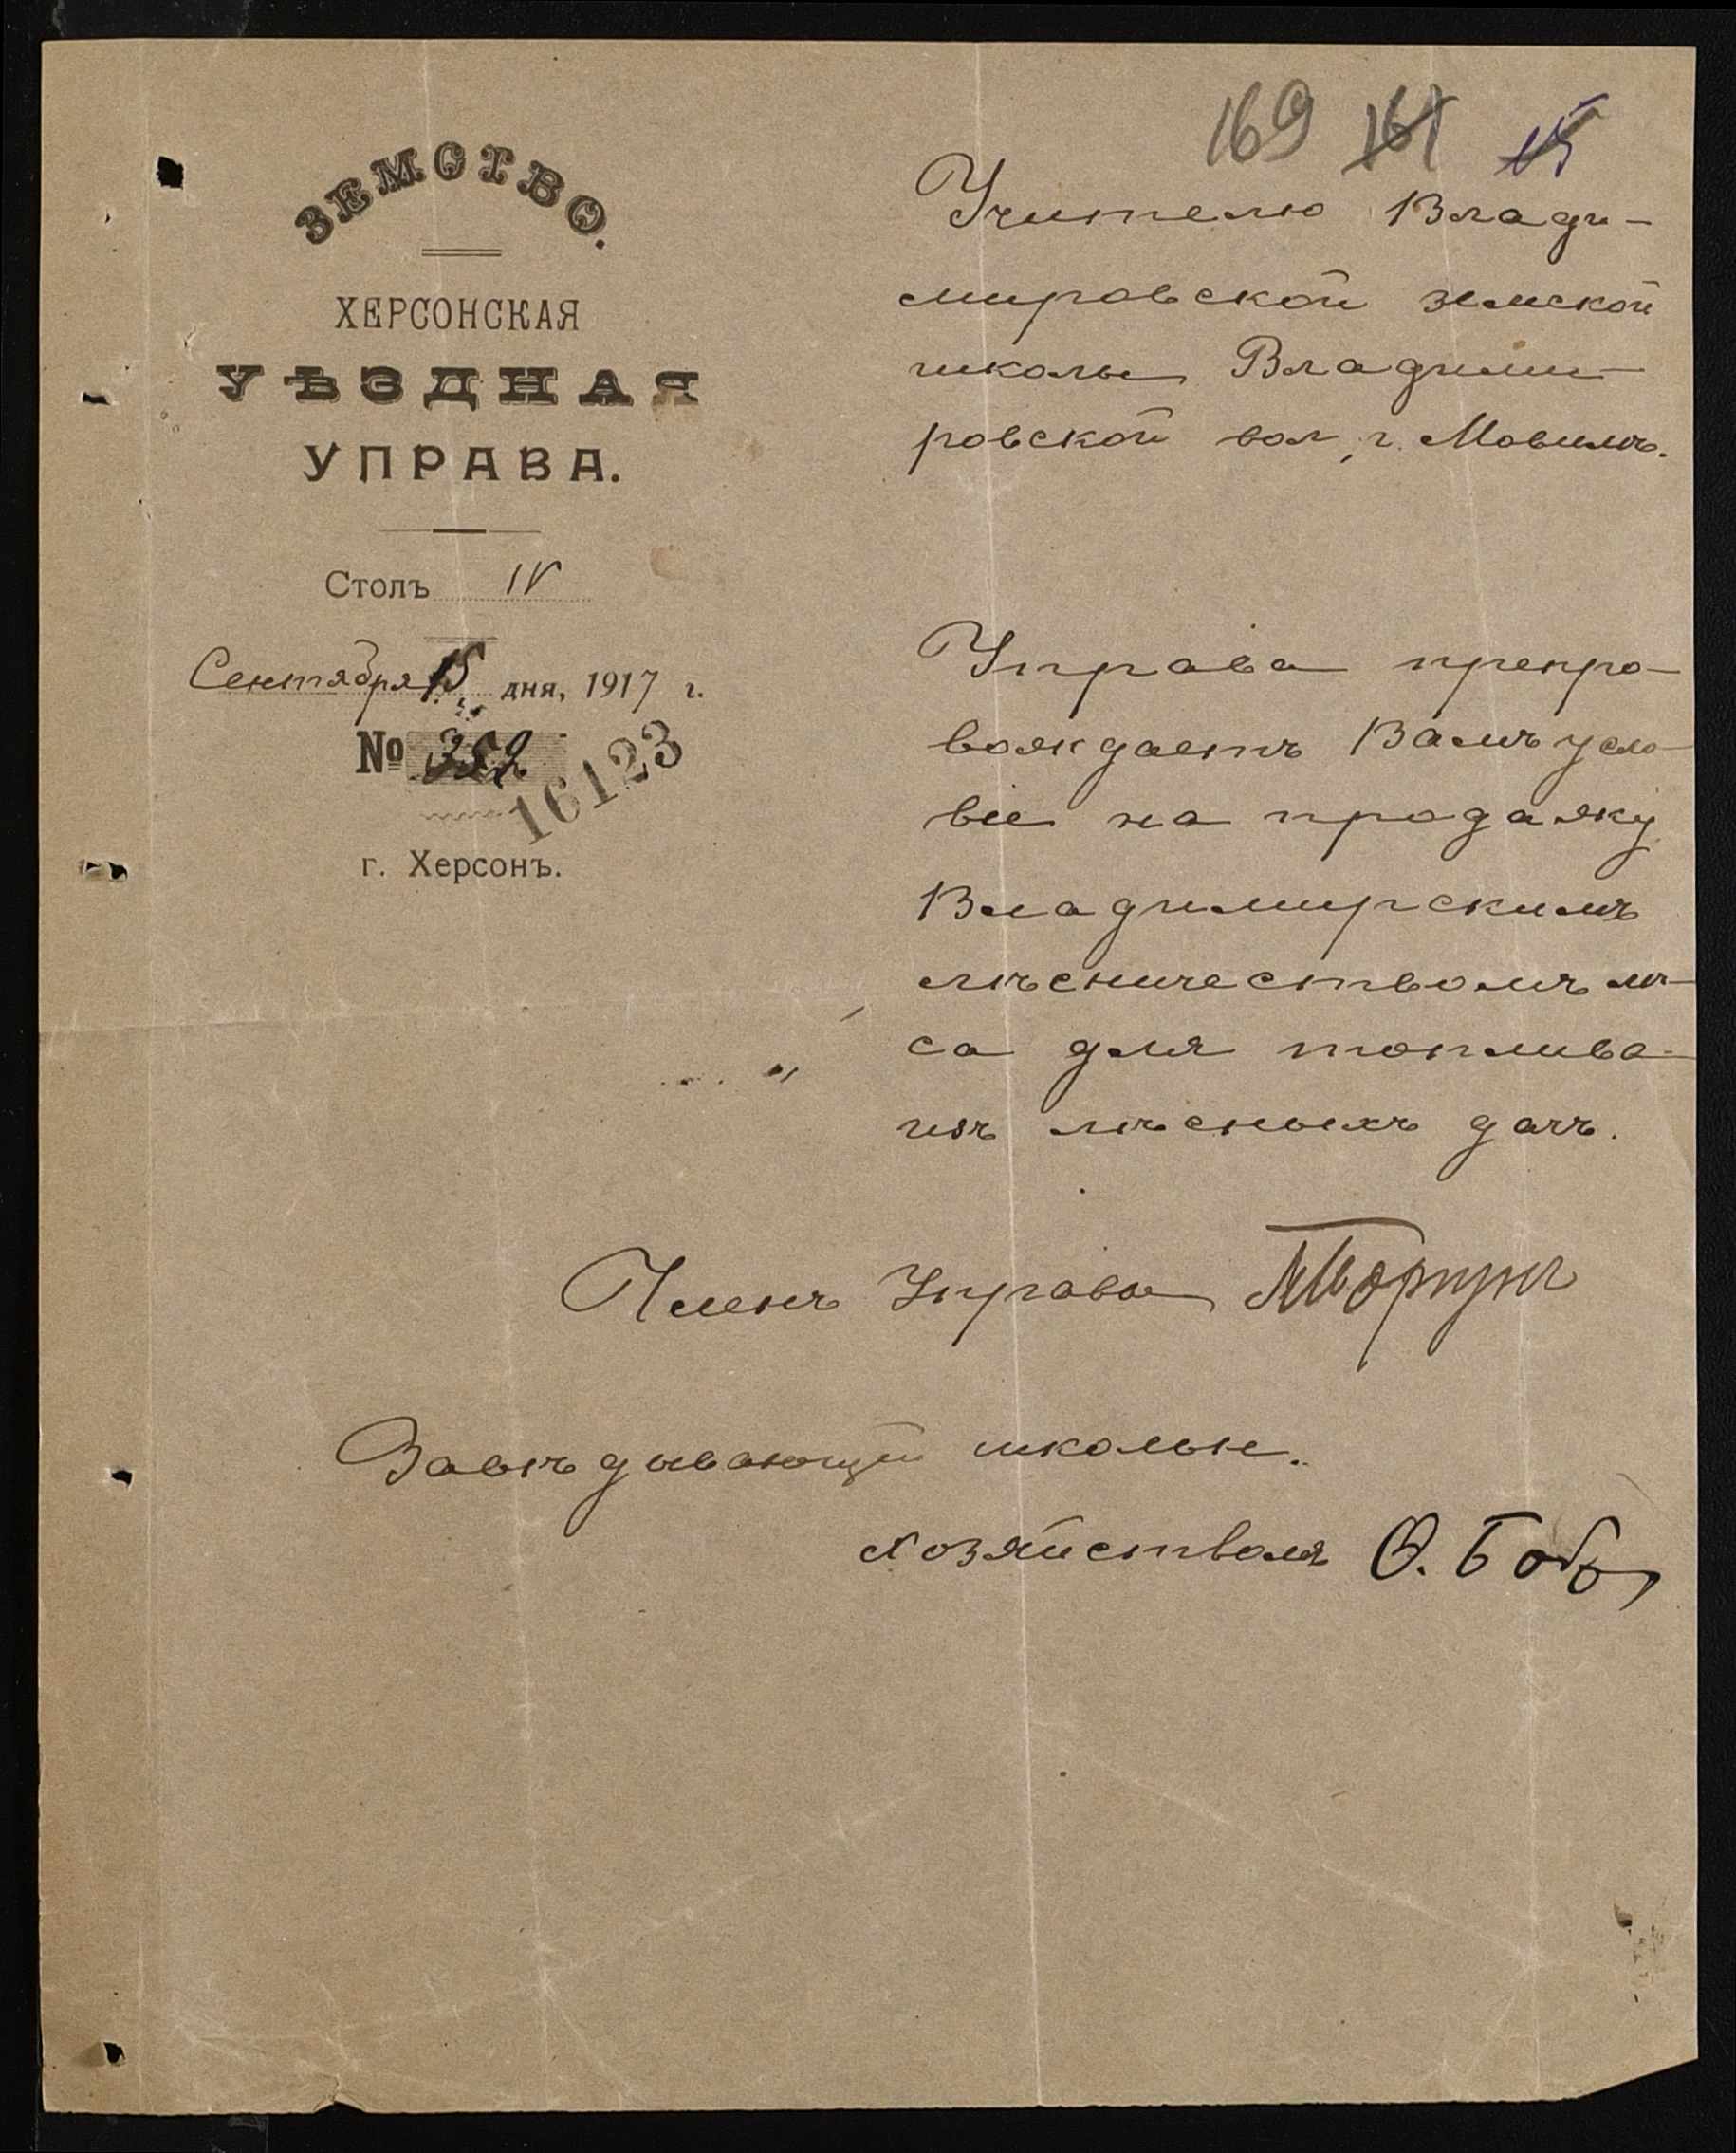 169 161 15
ЗЕМСТВО.
ХЕРСОНСКАЯ
УѢЗДНАЯ
УПРАВА.
Столъ IV
Сентября 15 дня, 1917 г.
№ 352
16123
г. Херсонъ.
Учителю Влади-
мировской земской
школы Владими-
ровской вол, г.
Управа препро-
вождаетъ Вамъ усло-
віе на продажу
Владимирскимъ
лѣсничествомъ лѣ-
са для топлива
изъ лѣсныхъ дачъ.
Членъ Управы
Завѣдывающій школьн.
хозяйствомъ